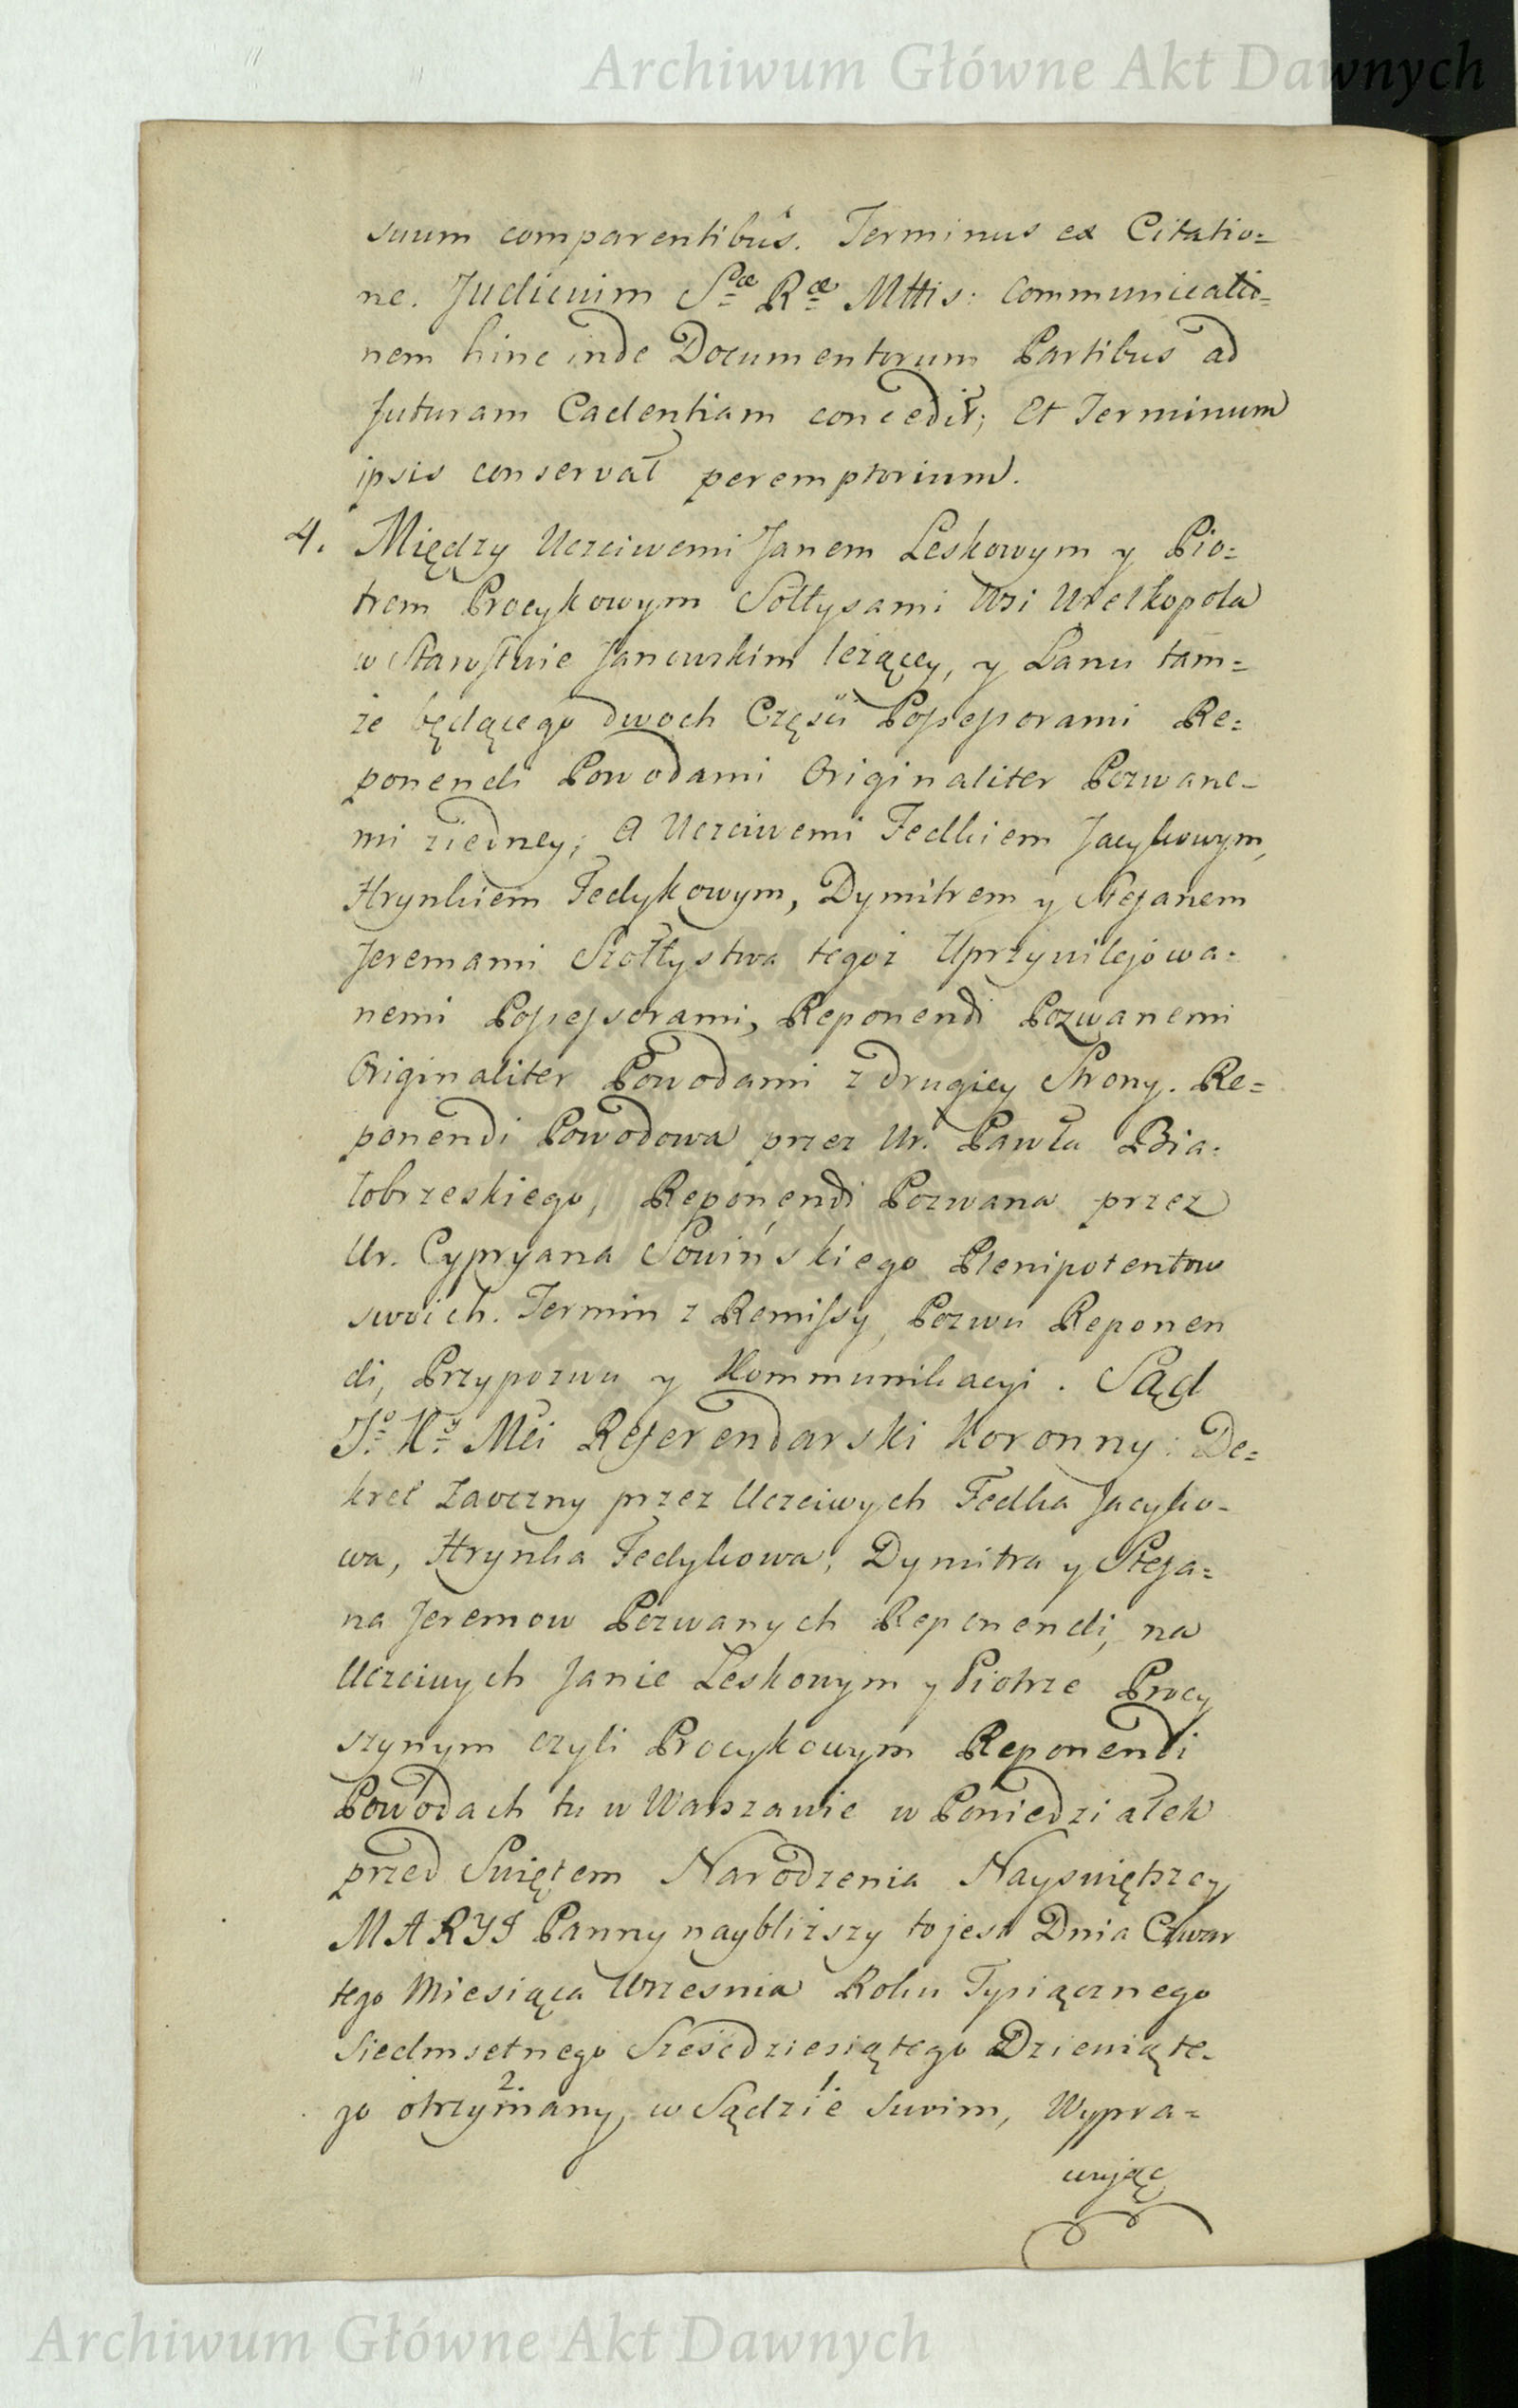 Archiwum Główne Akt Dawnych
suum comparentibus. Terminus ex Citatio=
ne. Judicium Sæ Ræ Mttis: Communicatio=
nem hinc inde Documentorum Partibus ad
futuram Cadentiam concedit; Et Terminum
ipsis conservat peremptorium.
4. Między Uczciwemi Janem Leskowym y Pio=
trem Procykowym Sołtysami Wsi Wielkopola
w Starostwie Janowskim leżącey, y Łanu tam=
że będącego dwoch Częsci Possessorami Re=
ponendi Powodami Originaliter Pozwane=
mi ziedney; A Uczciwemi Fedkiem Jacykowym,
Hrynkiem Fedykowym, Dymitrem y Stefanem
Jeremami Szołtystwa tegoż Uprzywilejowa=
nemi Possessorami, Reponendi Pozwanemi
Originaliter Powodami z drugiey Strony. Re=
ponendi Powodowa przez Ur. Pawła Bia=
łobrzeskiego, Reponendi Pozwana przez
Ur. Cypryana Sowińskiego Plenipotentow
swoich. Termin z Remissy, Pozwu Reponen
di, Przypozwu y Kommunikacyi. Sąd
Jo Ky Mci Referendarski Koronny: De=
kret Zaoczny przez Uczciwych Fedka Jacyko=
wa, Hrynka Fedykowa, Dymitra y Stefa=
na Jeremow Pozwanych Reponendi, na
Uczciwych Janie Leskowym y Piotrze Procy
szynym czyli Procykowym Reponendi
Powodach tu w Warszawie w Poniedziałek
przed Swiętem Narodzenia Nayswiętszey
MARYI Panny naybliższy to jest Dnia Czwar
tego Miesiąca Wrzesnia Roku Tysiącznego
Siedmsetnego Sześćdziesiątego Dziewiąte=
go otrzymany, w Sądzie swoim, Wypra=
2. 1.
wując
Archiwum Główne Akt Dawnych